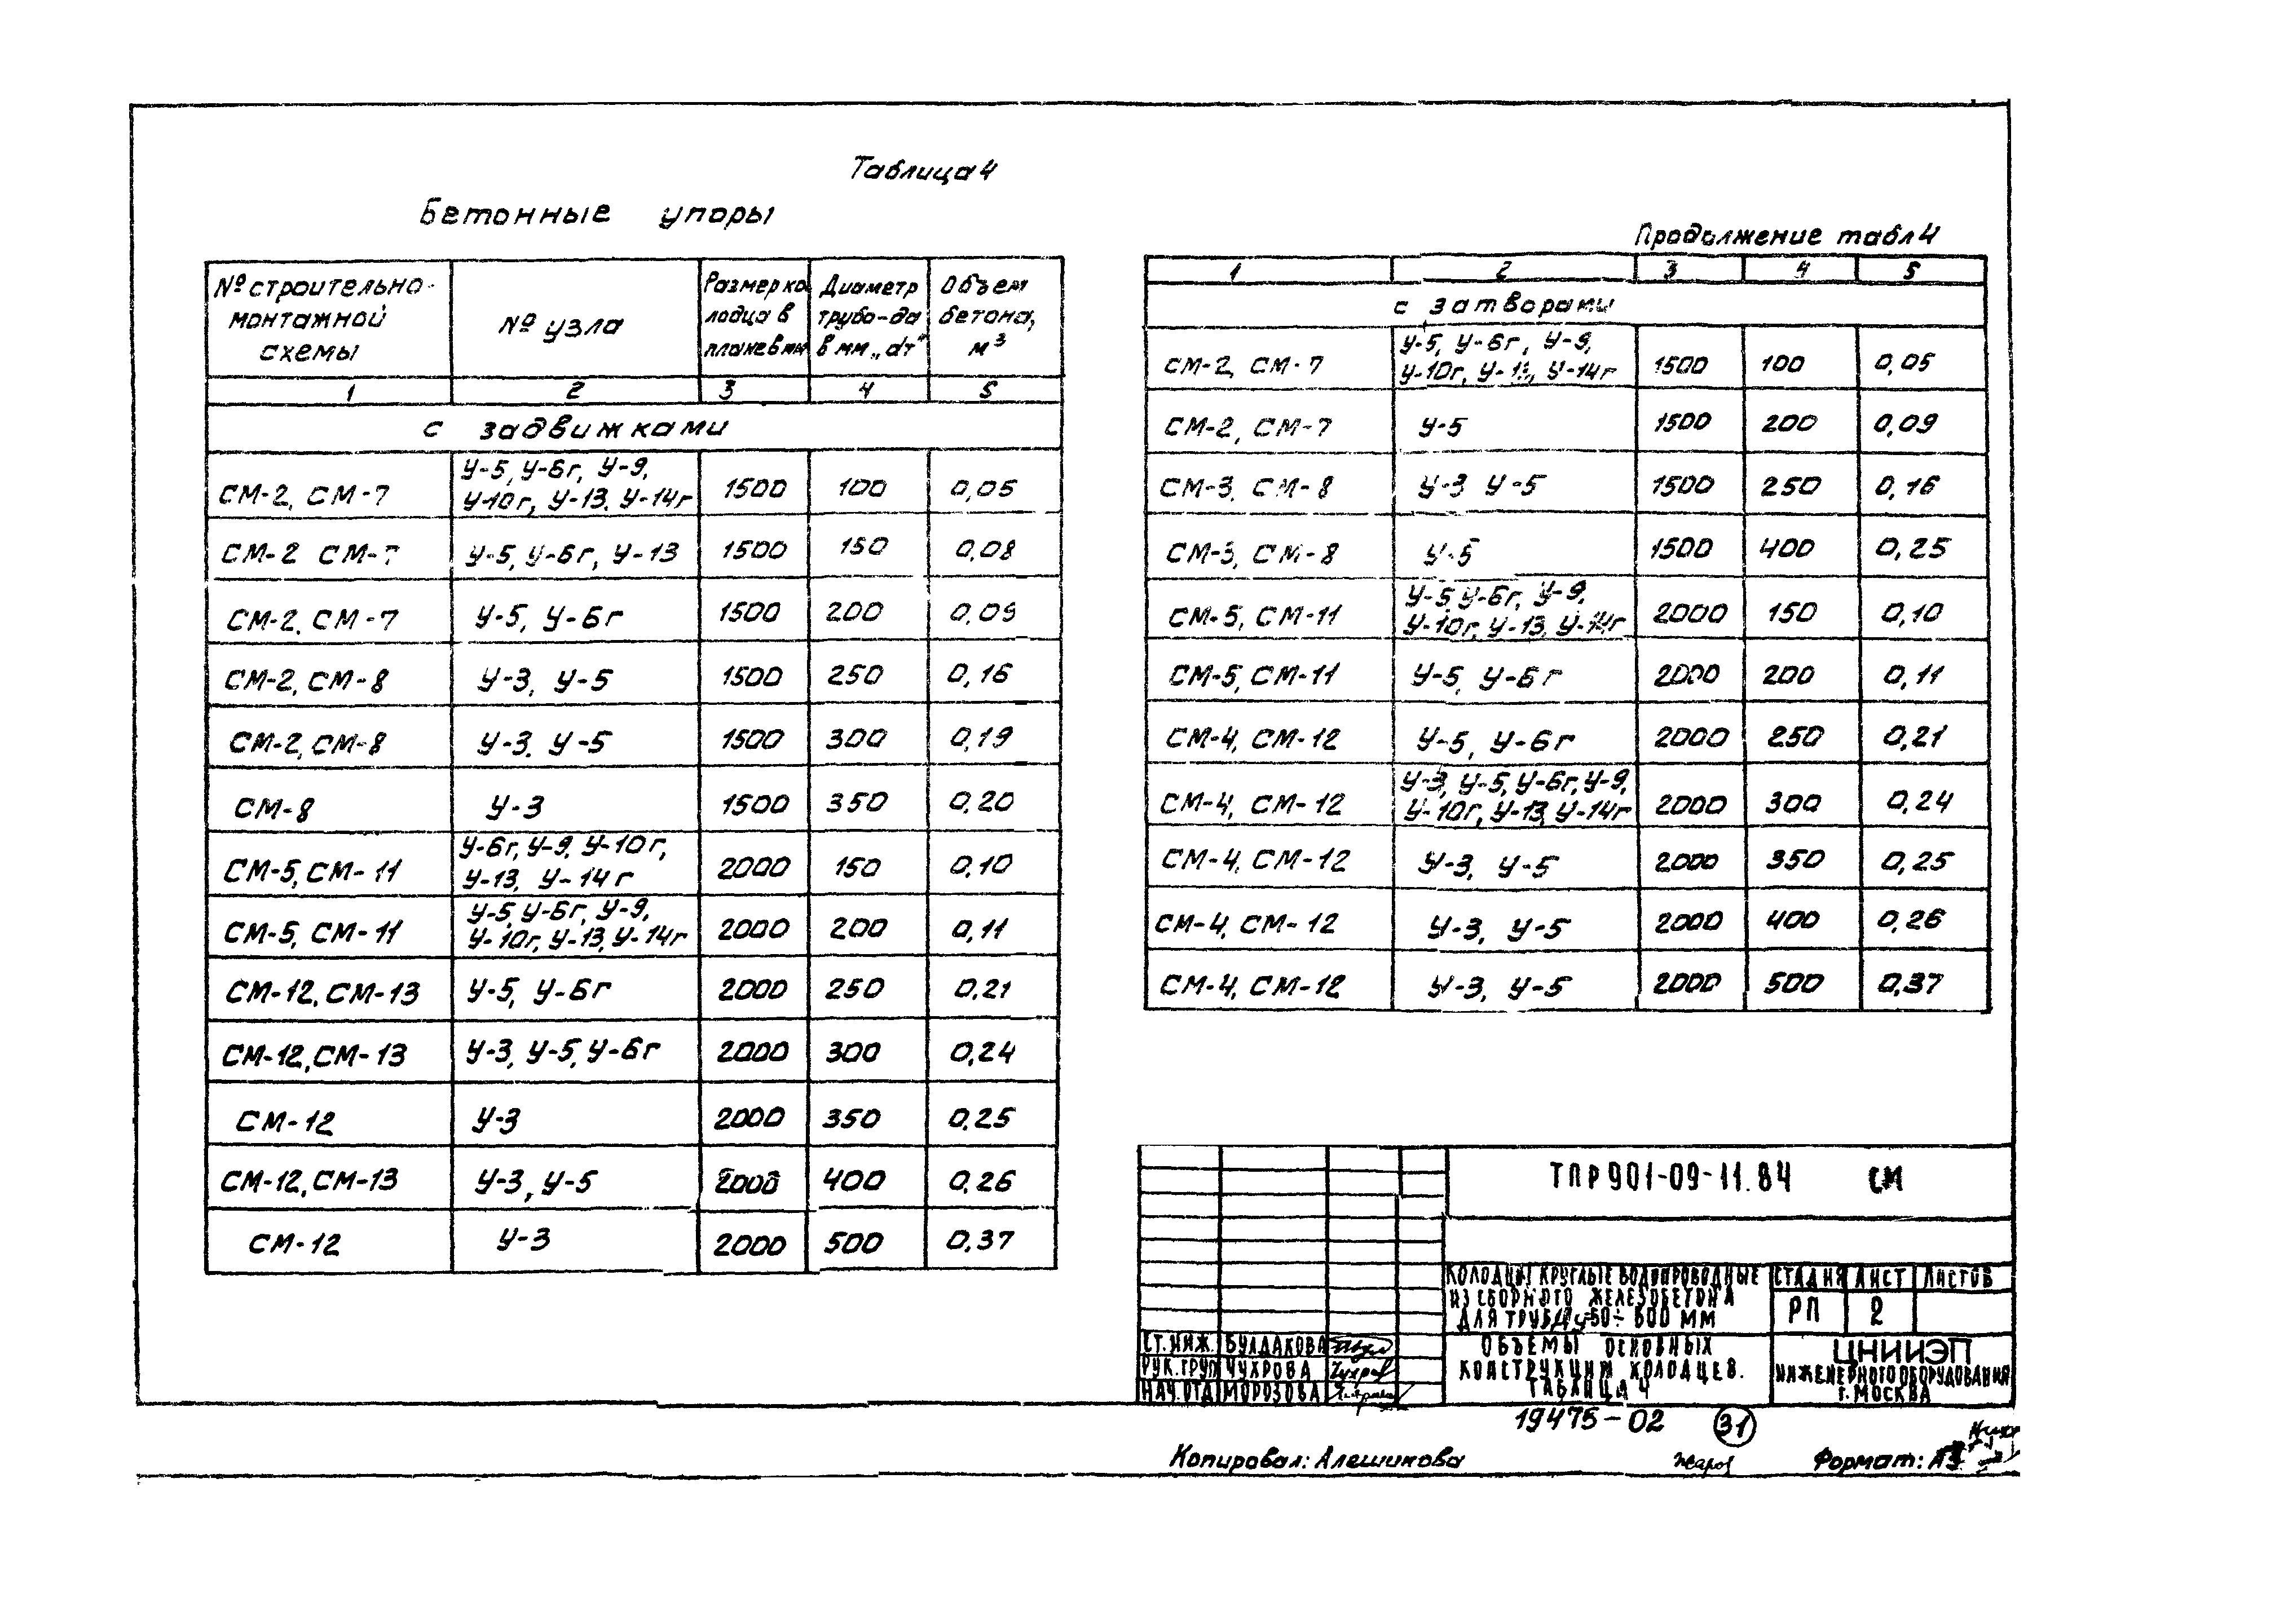 Таблица 4
Бетонные упоры
№ строительно-монтажной схемы | № узла | Размер колодца в плане в мм | Диаметр трубо-да в мм „dт" | Объем бетона, м³
1 2 3 4 5
с задвижками
СМ-2, СМ-7 | У-5, У-6г, У-9, У-10г, У-13, У-14г | 1500 | 100 | 0,05
СМ-2 СМ-7 | У-5, У-6г, У-13 | 1500 | 150 | 0,08
СМ-2, СМ-7 | У-5, У-6г | 1500 | 200 | 0,09
СМ-2, СМ-8 | У-3, У-5 | 1500 | 250 | 0,16
СМ-2, СМ-8 | У-3, У-5 | 1500 | 300 | 0,19
СМ-8 | У-3 | 1500 | 350 | 0,20
СМ-5, СМ-11 | У-6г, У-9, У-10г, У-13, У-14г | 2000 | 150 | 0,10
СМ-5, СМ-11 | У-5, У-6г, У-9, У-10г, У-13, У-14г | 2000 | 200 | 0,11
СМ-12, СМ-13 | У-5, У-6г | 2000 | 250 | 0,21
СМ-12, СМ-13 | У-3, У-5, У-6г | 2000 | 300 | 0,24
СМ-12 | У-3 | 2000 | 350 | 0,25
СМ-12, СМ-13 | У-3, У-5 | 2000 | 400 | 0,26
СМ-12 | У-3 | 2000 | 500 | 0,37
Продолжение табл 4
1 2 3 4 5
с затворами
СМ-2, СМ-7 | У-5, У-6г, У-9, У-10г, У-13, У-14г | 1500 | 100 | 0,05
СМ-2, СМ-7 | У-5 | 1500 | 200 | 0,09
СМ-3, СМ-8 | У-3 У-5 | 1500 | 250 | 0,16
СМ-3, СМ-8 | У-5 | 1500 | 400 | 0,25
СМ-5, СМ-11 | У-5 У-6г, У-9, У-10г, У-13, У-14г | 2000 | 150 | 0,10
СМ-5, СМ-11 | У-5, У-6г | 2000 | 200 | 0,11
СМ-4, СМ-12 | У-5, У-6г | 2000 | 250 | 0,21
СМ-4, СМ-12 | У-3, У-5, У-6г, У-9, У-10г, У-13, У-14г | 2000 | 300 | 0,24
СМ-4, СМ-12 | У-3, У-5 | 2000 | 350 | 0,25
СМ-4, СМ-12 | У-3, У-5 | 2000 | 400 | 0,26
СМ-4, СМ-12 | У-3, У-5 | 2000 | 500 | 0,37
ТПР 901-09-11.84 СМ
КОЛОДЦЫ КРУГЛЫЕ ВОДОПРОВОДНЫЕ
ИЗ СБОРНОГО ЖЕЛЕЗОБЕТОНА
ДЛЯ ТРУБ Ду=50÷600 ММ
СТАДИЯ ЛИСТ ЛИСТОВ
РП 2
СТ.ИНЖ. БУЛДАКОВА
РУК.ГРУП ЧУХРОВА
НАЧ.ОТД МОРОЗОВА
ОБЪЕМЫ ОСНОВНЫХ
КОНСТРУКЦИЙ КОЛОДЦЕВ.
ТАБЛИЦА 4
ЦНИИЭП
ИНЖЕНЕРНОГО ОБОРУДОВАНИЯ
г. МОСКВА
19475-02 31
Копировал: Алешикова
Формат: А3